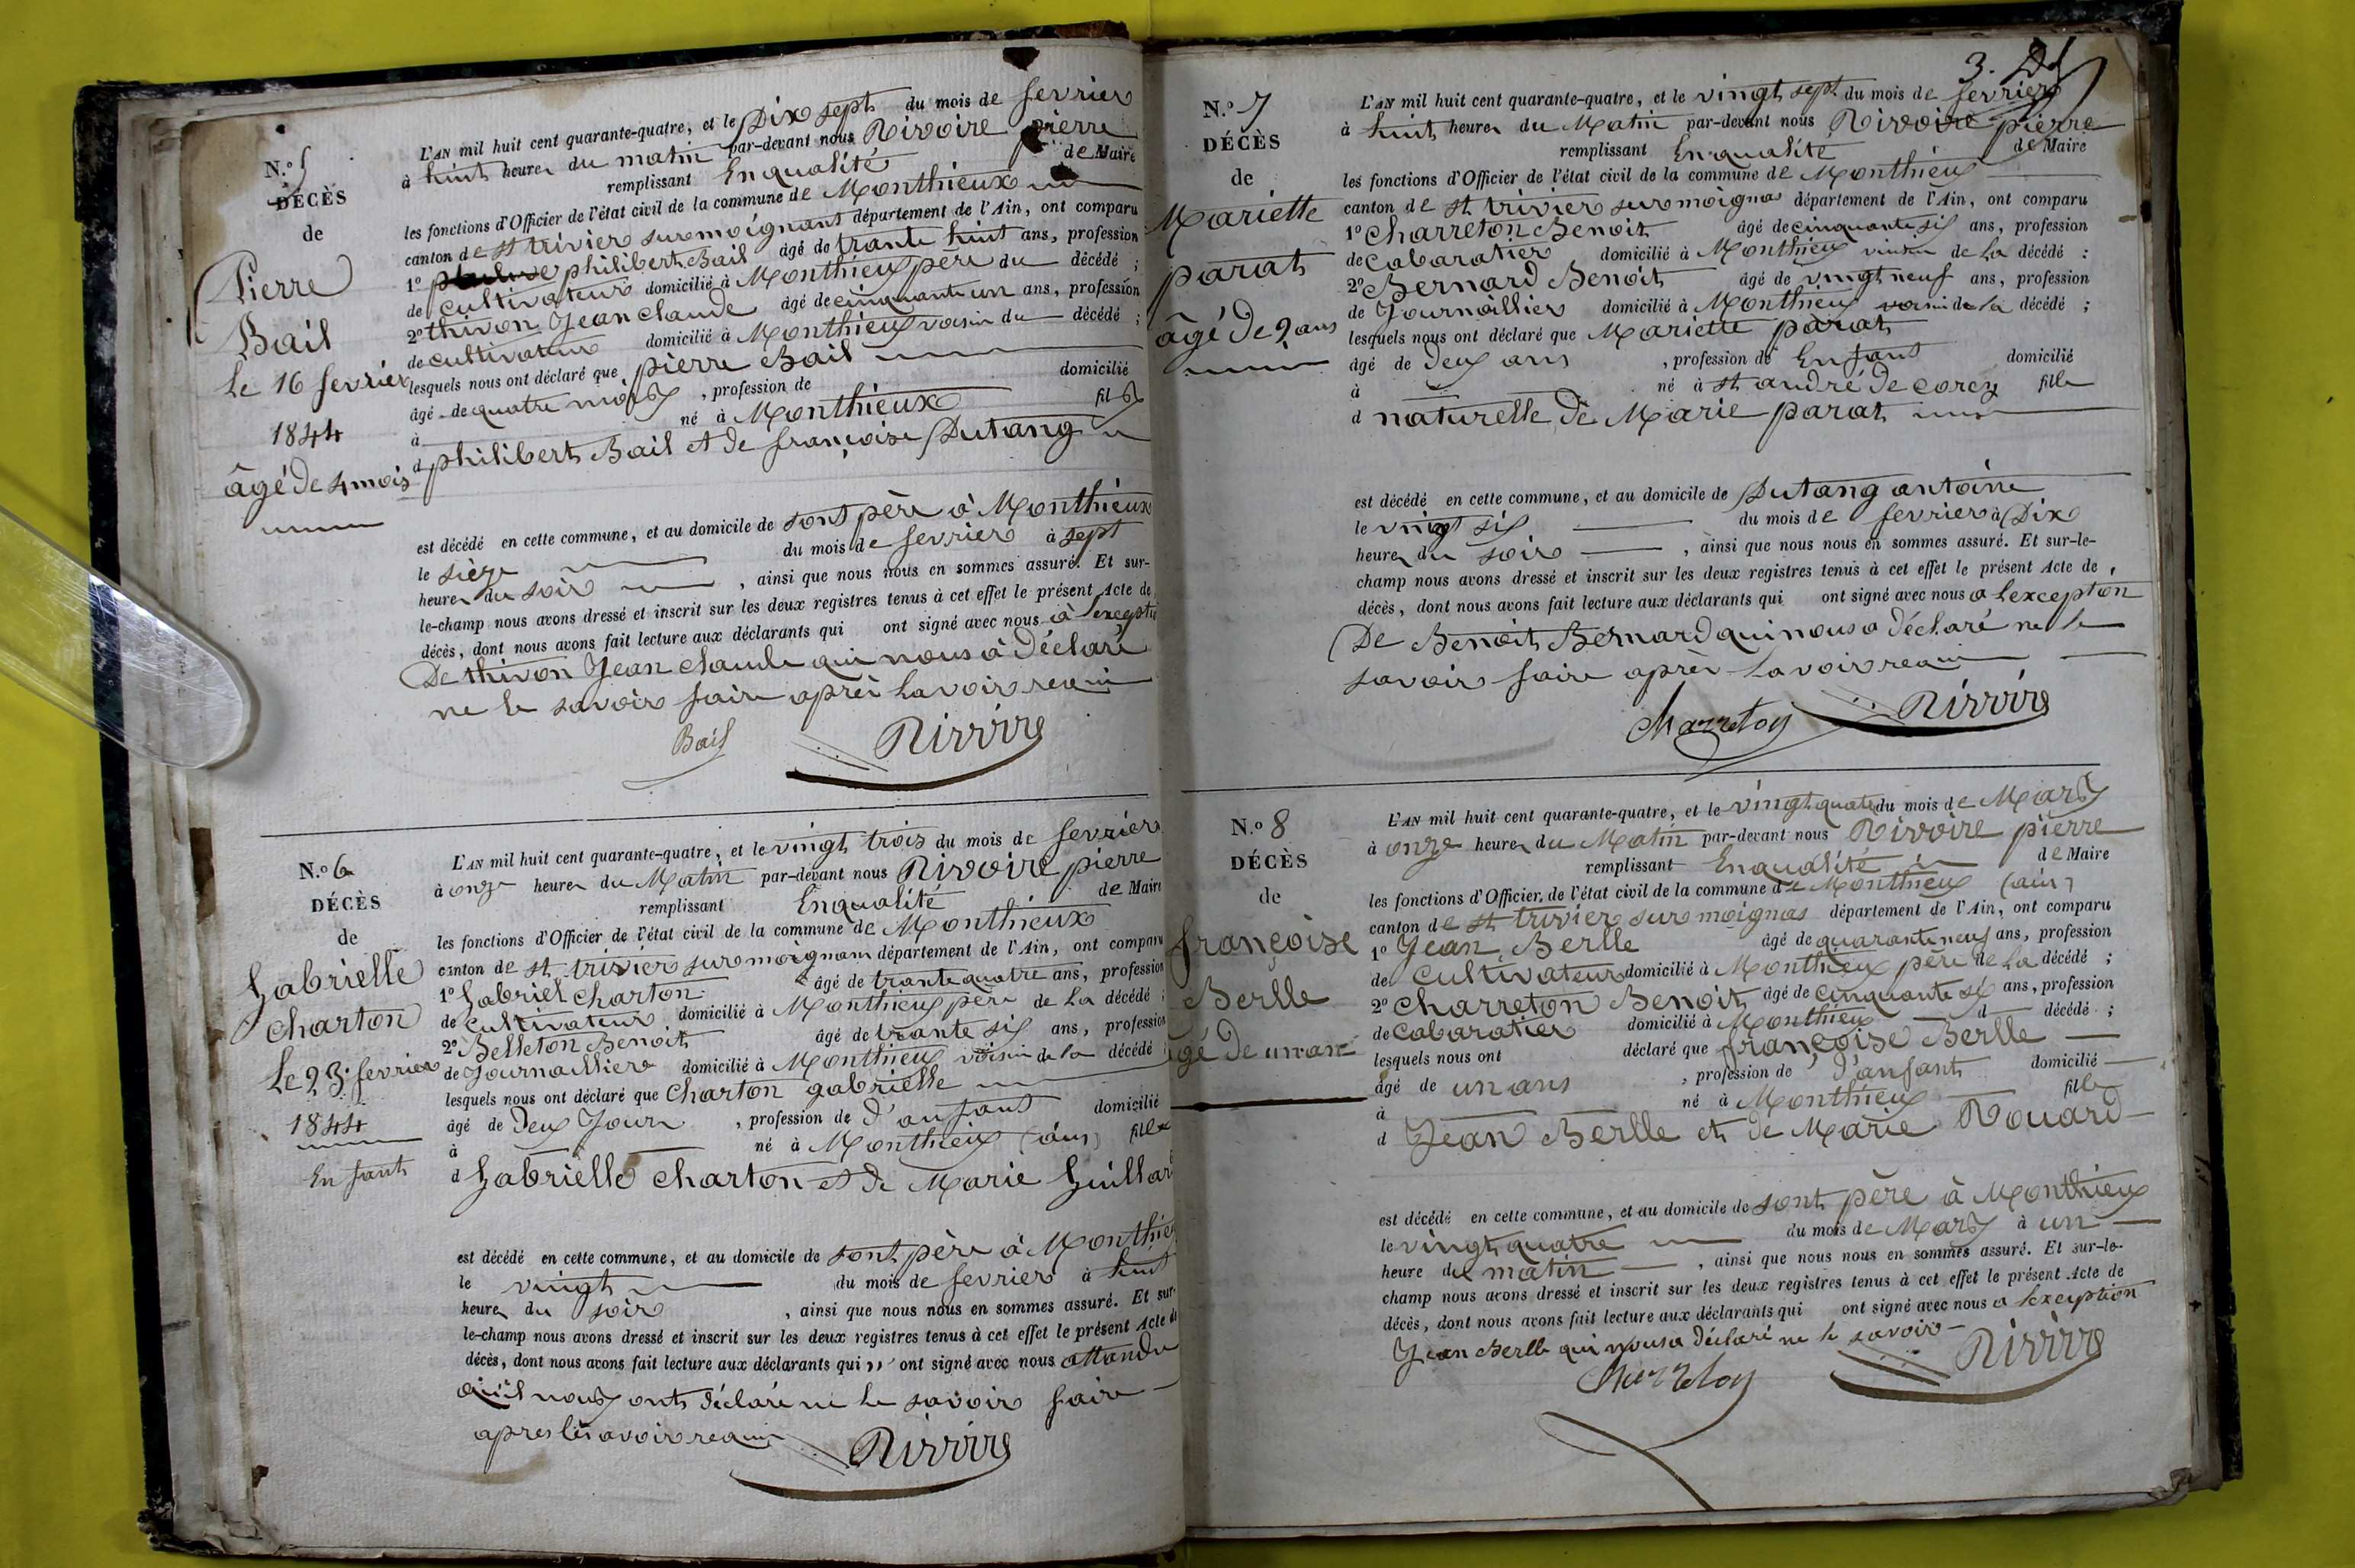 N.o 5
DÉCÈS
de
Pierre
Bail
Le 16 fevrier
1844
âgé de 4 mois
L'AN mil huit cent quarante-quatre, et le Dix sept du mois de fevrier
à huit heures du matin par-devant nous Rivoire pierre
remplissant Enqualité de Maire
les fonctions d'Officier de l'état civil de la commune de Monthieux
canton de st trivier sur moignant département de l'Ain, ont comparu
1o philibert Bail âgé de trante huit ans, profession
de cultivateur domicilié à Monthieux père du décédé ;
2o thivon Jean claude âgé de cinquante un ans, profession
de cultivateur domicilié à Monthieux voisin du décédé ;
lesquels nous ont déclaré que pierre Bail
âgé de quatre mois , profession de domicilié
à né à Monthieux fils
d philibert Bail et de françoise Dutang
est décédé en cette commune, et au domicile de sont père à Monthieux
le sièze du mois de fevrier à sept
heures du soir , ainsi que nous nous en sommes assuré. Et sur-
le-champ nous avons dressé et inscrit sur les deux registres tenus à cet effet le présent Acte de
décès, dont nous avons fait lecture aux déclarants qui ont signé avec nous à l'excepti
De thivon Jean claude qui nous à déclaré
ne le savoir faire après lavoir requi
Bail Rivoire
N.o 6
DÉCÈS
de
Gabrielle
charton
Le 23 fevrier
1844
Enfant
L'AN mil huit cent quarante-quatre, et le vingt trois du mois de fevrier
à onze heures du Matin par-devant nous Rivoire pierre
remplissant Enqualité de Maire
les fonctions d'Officier de l'état civil de la commune de Monthieux
canton de st trivier sur moignans département de l'Ain, ont comparu
1o Gabriel charton âgé de trante quatre ans, profession
de cultivateur domicilié à Monthieux père de la décédé ;
2o Belleton Benoit âgé de trante six ans, profession
de Journallier domicilié à Monthieux voisin de la décédé
lesquels nous ont déclaré que Charton gabrielle
âgé de Deux Jours , profession de d'anfant domicilié
à né à Monthieux (ain) fille
d Gabrielle charton et de Marie Guillar
est décédé en cette commune, et au domicile de sont père à Monthie
le vingt du mois de fevrier à huit
heures du soir , ainsi que nous nous en sommes assuré. Et sur-
le-champ nous avons dressé et inscrit sur les deux registres tenus à cet effet le présent Acte de
décès, dont nous avons fait lecture aux déclarants qui ont signé avec nous attandu
qu'il nous onts déclaré ne le savoir faire
apres les avoir requi Rivoire
3.
N.o 7
DÉCÈS
de
Mariette
parat
âgé de 2 ans
L'AN mil huit cent quarante-quatre, et le vingt sept du mois de fevrier
à huit heures du Matin par-devant nous Rivoire pierre
remplissant Enqualité de Maire
les fonctions d'Officier de l'état civil de la commune de Monthieux
canton de st trivier sur moignas département de l'Ain, ont comparu
1o Charreton Benoit âgé de cinquante six ans, profession
de Cabaratier domicilié à Monthieux voisin de La décédé :
2o Bernard Benoit âgé de vingt neuf ans, profession
de Journallier domicilié à Monthieux voisin de la décédé ;
lesquels nous ont déclaré que Mariette parat
âgé de deux ans , profession de Enfant domicilié
à né à st andré de corcy fille
d naturelle de Marie parat
est décédé en cette commune, et au domicile de Dutang antoine
le vingt six du mois de fevrier à Dix
heures du soir , ainsi que nous nous en sommes assuré. Et sur-le-
champ nous avons dressé et inscrit sur les deux registres tenus à cet effet le présent Acte de
décès, dont nous avons fait lecture aux déclarants qui ont signé avec nous a lexception
De Benoit Bernard qui nous a déclaré ne le
savoir faire après lavoir requi
Charreton Rivoire
N.o 8
DÉCÈS
de
françoise
Berlle
agé de un ans
L'AN mil huit cent quarante-quatre, et le vingt quatre du mois de Mars
à onze heures du Matin par-devant nous Rivoire pierre
remplissant Enqualité de Maire
les fonctions d'Officier de l'état civil de la commune de Monthieux (ain)
canton de st trivier sur moignas département de l'Ain, ont comparu
1o Jean Berlle âgé de quarante neuf ans, profession
de cultivateur domicilié à Monthieux père de La décédé ;
2o Charreton Benoit âgé de cinquante six ans, profession
de Cabaratier domicilié à Monthieux d décédé ;
lesquels nous ont déclaré que françoise Berlle
âgé de un ans , profession de d'anfant domicilié
à né à Monthieux fille
d Jean Berlle et de Marie Rouard
est décédé en cette commune, et au domicile de sont père à Monthieux
le vingt quatre du mois de Mars à un
heure du matin , ainsi que nous nous en sommes assuré. Et sur-le-
champ nous avons dressé et inscrit sur les deux registres tenus à cet effet le présent Acte de
décès, dont nous avons fait lecture aux déclarants qui ont signé avec nous a lexception
Jean Berlle qui nousa déclaré ne le savoir
Charreton Rivoire